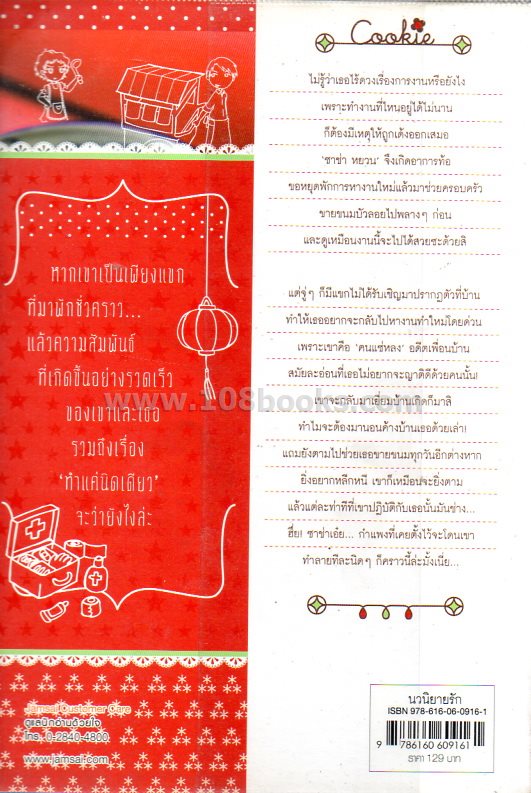 Cookie
ไม่รู้ว่าเธอไร้ดวงเรื่องการงานหรือยังไง
เพราะทำงานที่ไหนอยู่ได้ไม่นาน
ก็ต้องมีเหตุให้ถูกเด้งออกเสมอ
'ซาช่า หยวน' จึงเกิดอาการท้อ
ขอหยุดพักการหางานใหม่แล้วมาช่วยครอบครัว
ขายขนมบัวลอยไปพลางๆ ก่อน
และดูเหมือนงานนี้จะไปได้สวยซะด้วยสิ
แต่จู่ๆ ก็มีแขกไม่ได้รับเชิญมาปรากฏตัวที่บ้าน
ทำให้เธออยากจะกลับไปหางานทำใหม่โดยด่วน
เพราะเขาคือ 'คนแซ่หลง' อดีตเพื่อนบ้าน
สมัยละอ่อนที่เธอไม่อยากจะญาติดีด้วยคนนั้น!
เขาจะกลับมาเยี่ยมบ้านเกิดก็มาสิ
ทำไมจะต้องมานอนค้างบ้านเธอด้วยเล่า!
แถมยังตามไปช่วยเธอขายขนมทุกวันอีกต่างหาก
ยิ่งอยากหลีกหนี เขาก็เหมือนจะยิ่งตาม
แล้วแต่ละท่าทีที่เขาปฏิบัติกับเธอนั้นมันช่าง...
ฮึ่ย! ซาช่าเอ๋ย... กำแพงที่เคยตั้งไว้จะโดนเขา
ทำลายทีละนิดๆ ก็คราวนี้ล่ะมั้งเนี่ย...
หากเขาเป็นเพียงแขก
ที่มาพักชั่วคราว...
แล้วความสัมพันธ์
ที่เกิดขึ้นอย่างรวดเร็ว
ของเขาและเธอ
รวมถึงเรื่อง
'ทำแค่นิดเดียว'
จะว่ายังไงล่ะ
www.108books.com
Jamsai Customer Care
ดูแลนักอ่านด้วยใจ
โทร. 0-2840-4800
www.jamsai.com
นวนิยายรัก
ISBN 978-616-06-0916-1
9 786160 609161
ราคา 129 บาท